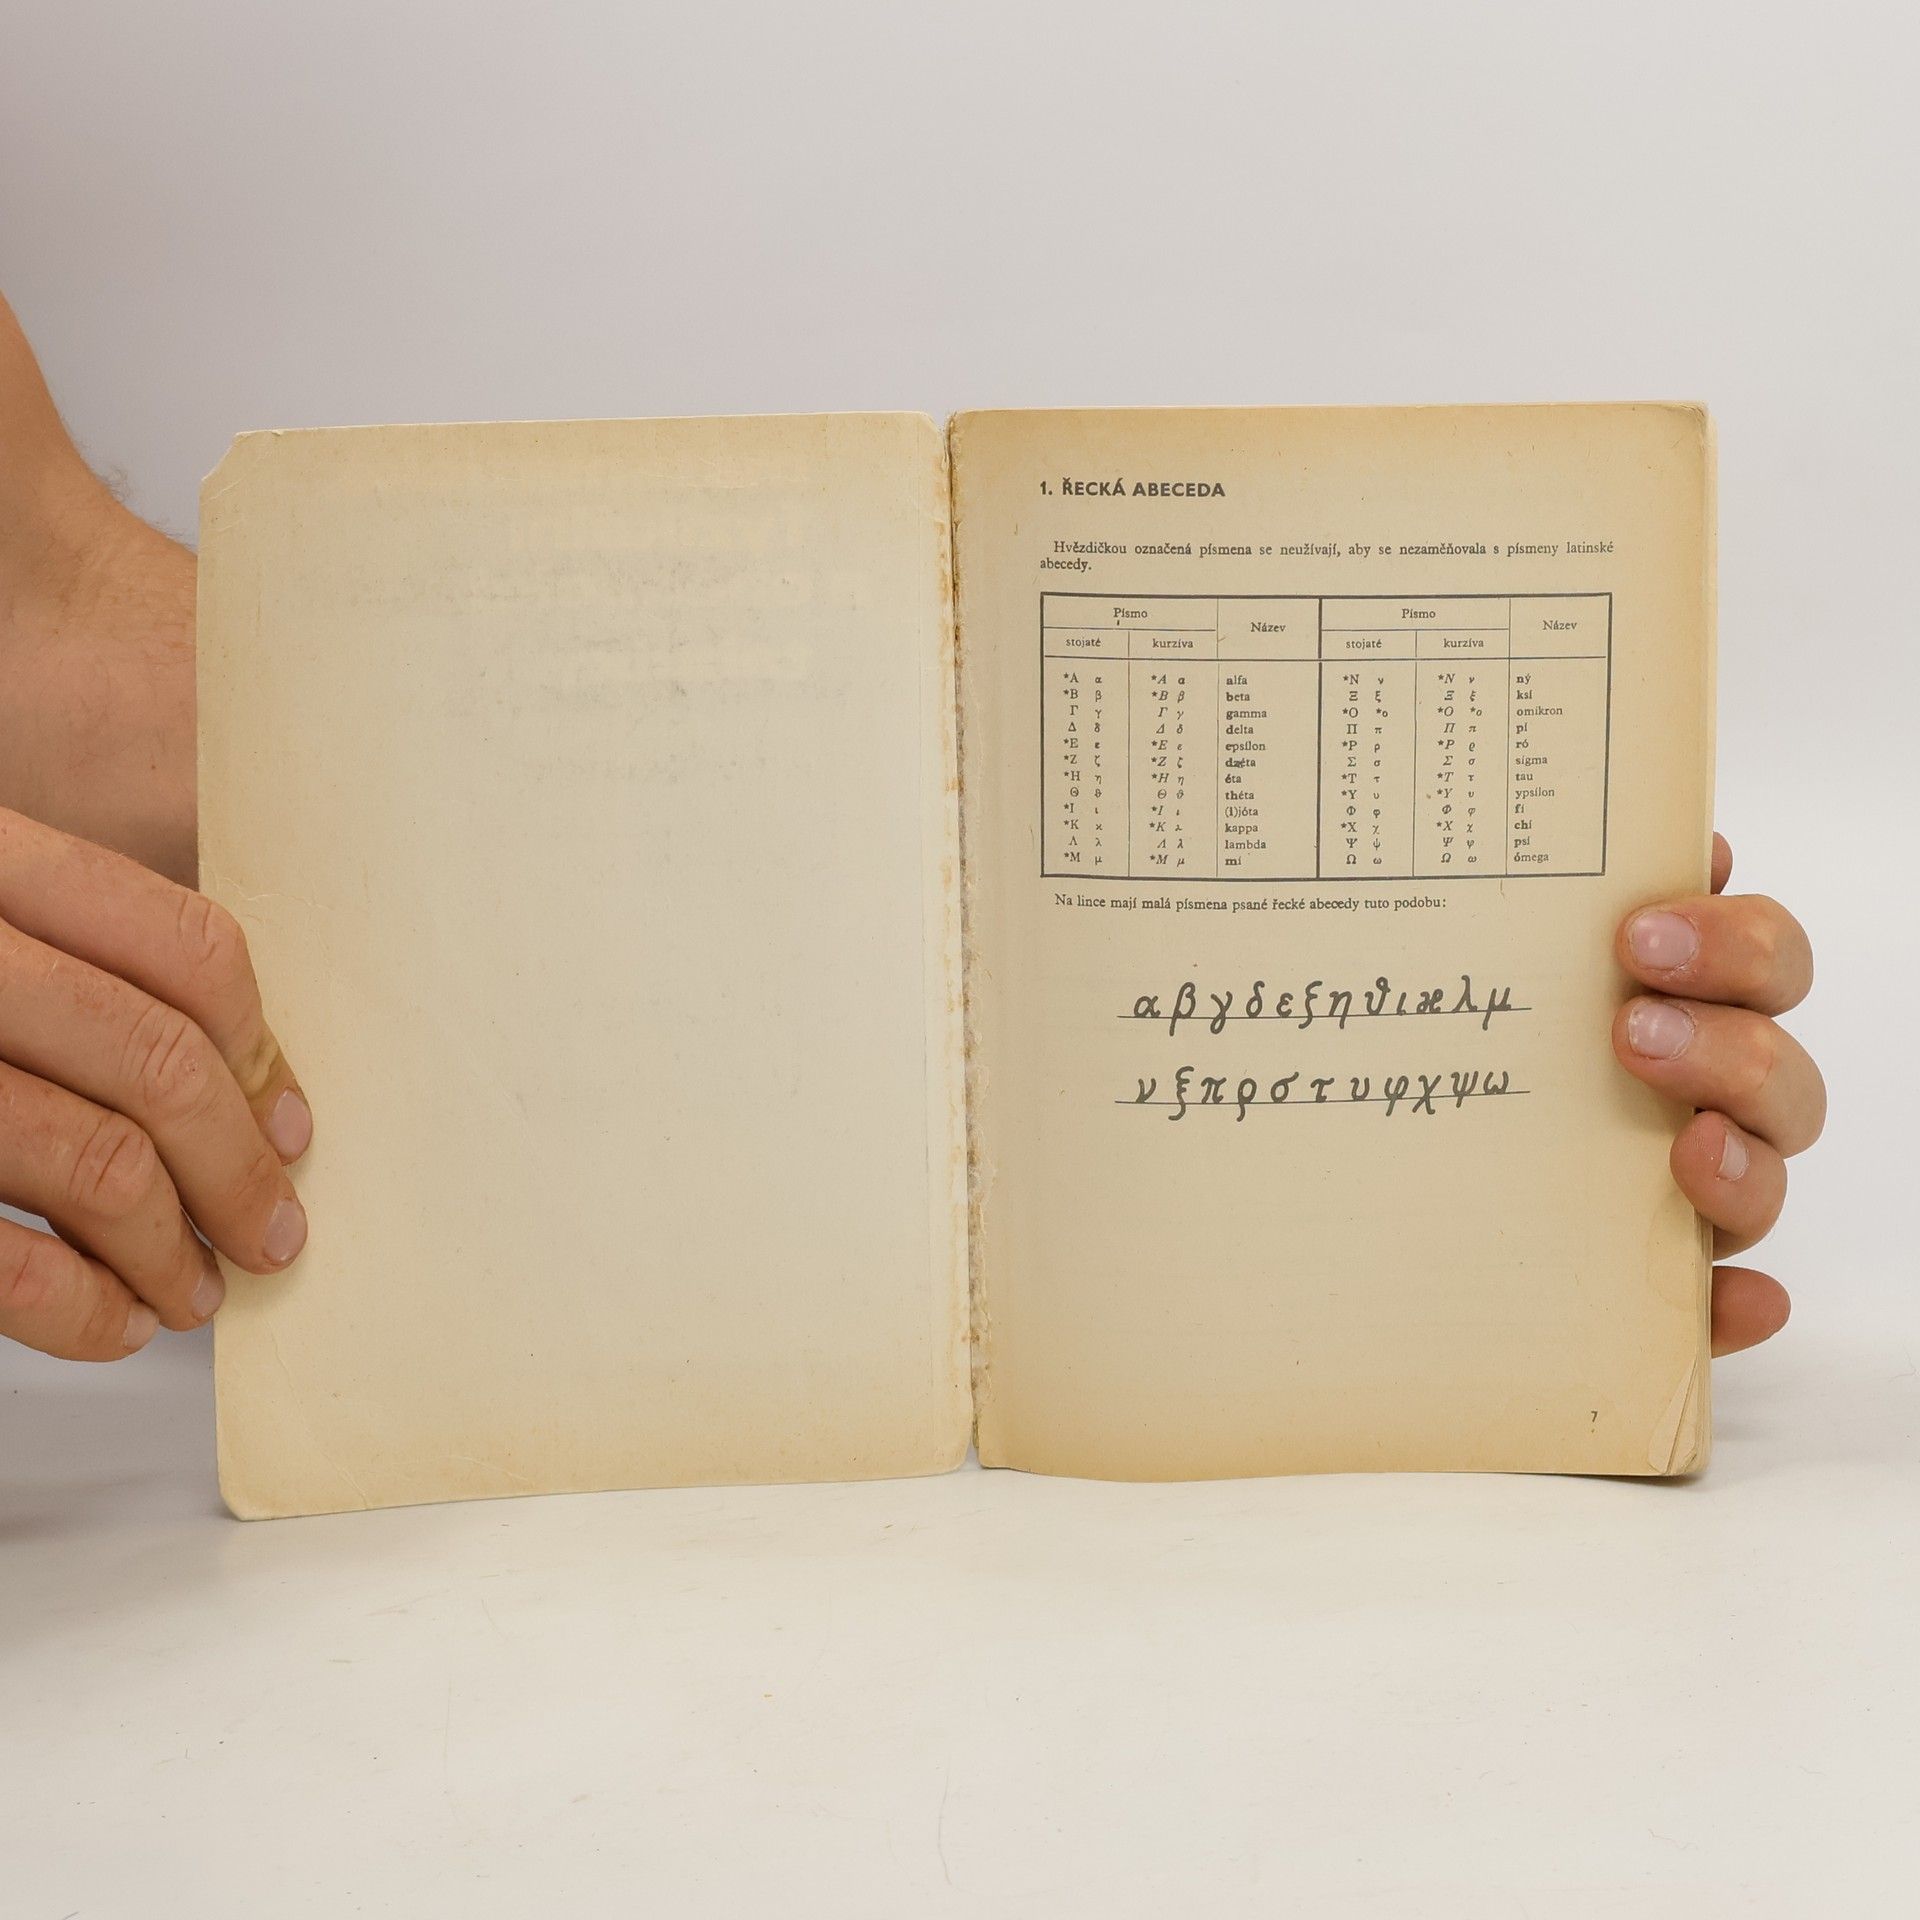 1. ŘECKÁ ABECEDA
Hvězdičkou označená písmena se neužívají, aby se nezaměňovala s písmeny latinské
abecedy.
Písmo Název Písmo Název
stojaté kurzíva stojaté kurzíva
*Α α *Α α alfa *Ν ν *Ν ν ný
*Β β *Β β beta Ξ ξ Ξ ξ ksí
Γ γ Γ γ gamma *Ο *ο *Ο *ο omikron
Δ δ Δ δ delta Π π Π π pí
*Ε ε *Ε ε epsílon *Ρ ρ *Ρ ϱ ró
*Ζ ζ *Ζ ζ dzéta Σ σ Σ σ sígma
*Η η *Η η éta *Τ τ *Τ τ tau
Θ ϑ Θ ϑ théta *Υ υ *Υ υ ypsílon
*Ι ι *Ι ι (i)jóta Φ φ Φ φ fí
*Κ ϰ *Κ λ kappa *Χ χ *Χ χ chí
Λ λ Λ λ lambda Ψ ψ Ψ ψ psí
*Μ μ *Μ μ mí Ω ω Ω ω ómega
Na lince mají malá písmena psané řecké abecedy tuto podobu:
α β γ δ ε ξ η ϑ ι ϰ λ μ
ν ξ π ρ σ τ υ φ χ ψ ω
7